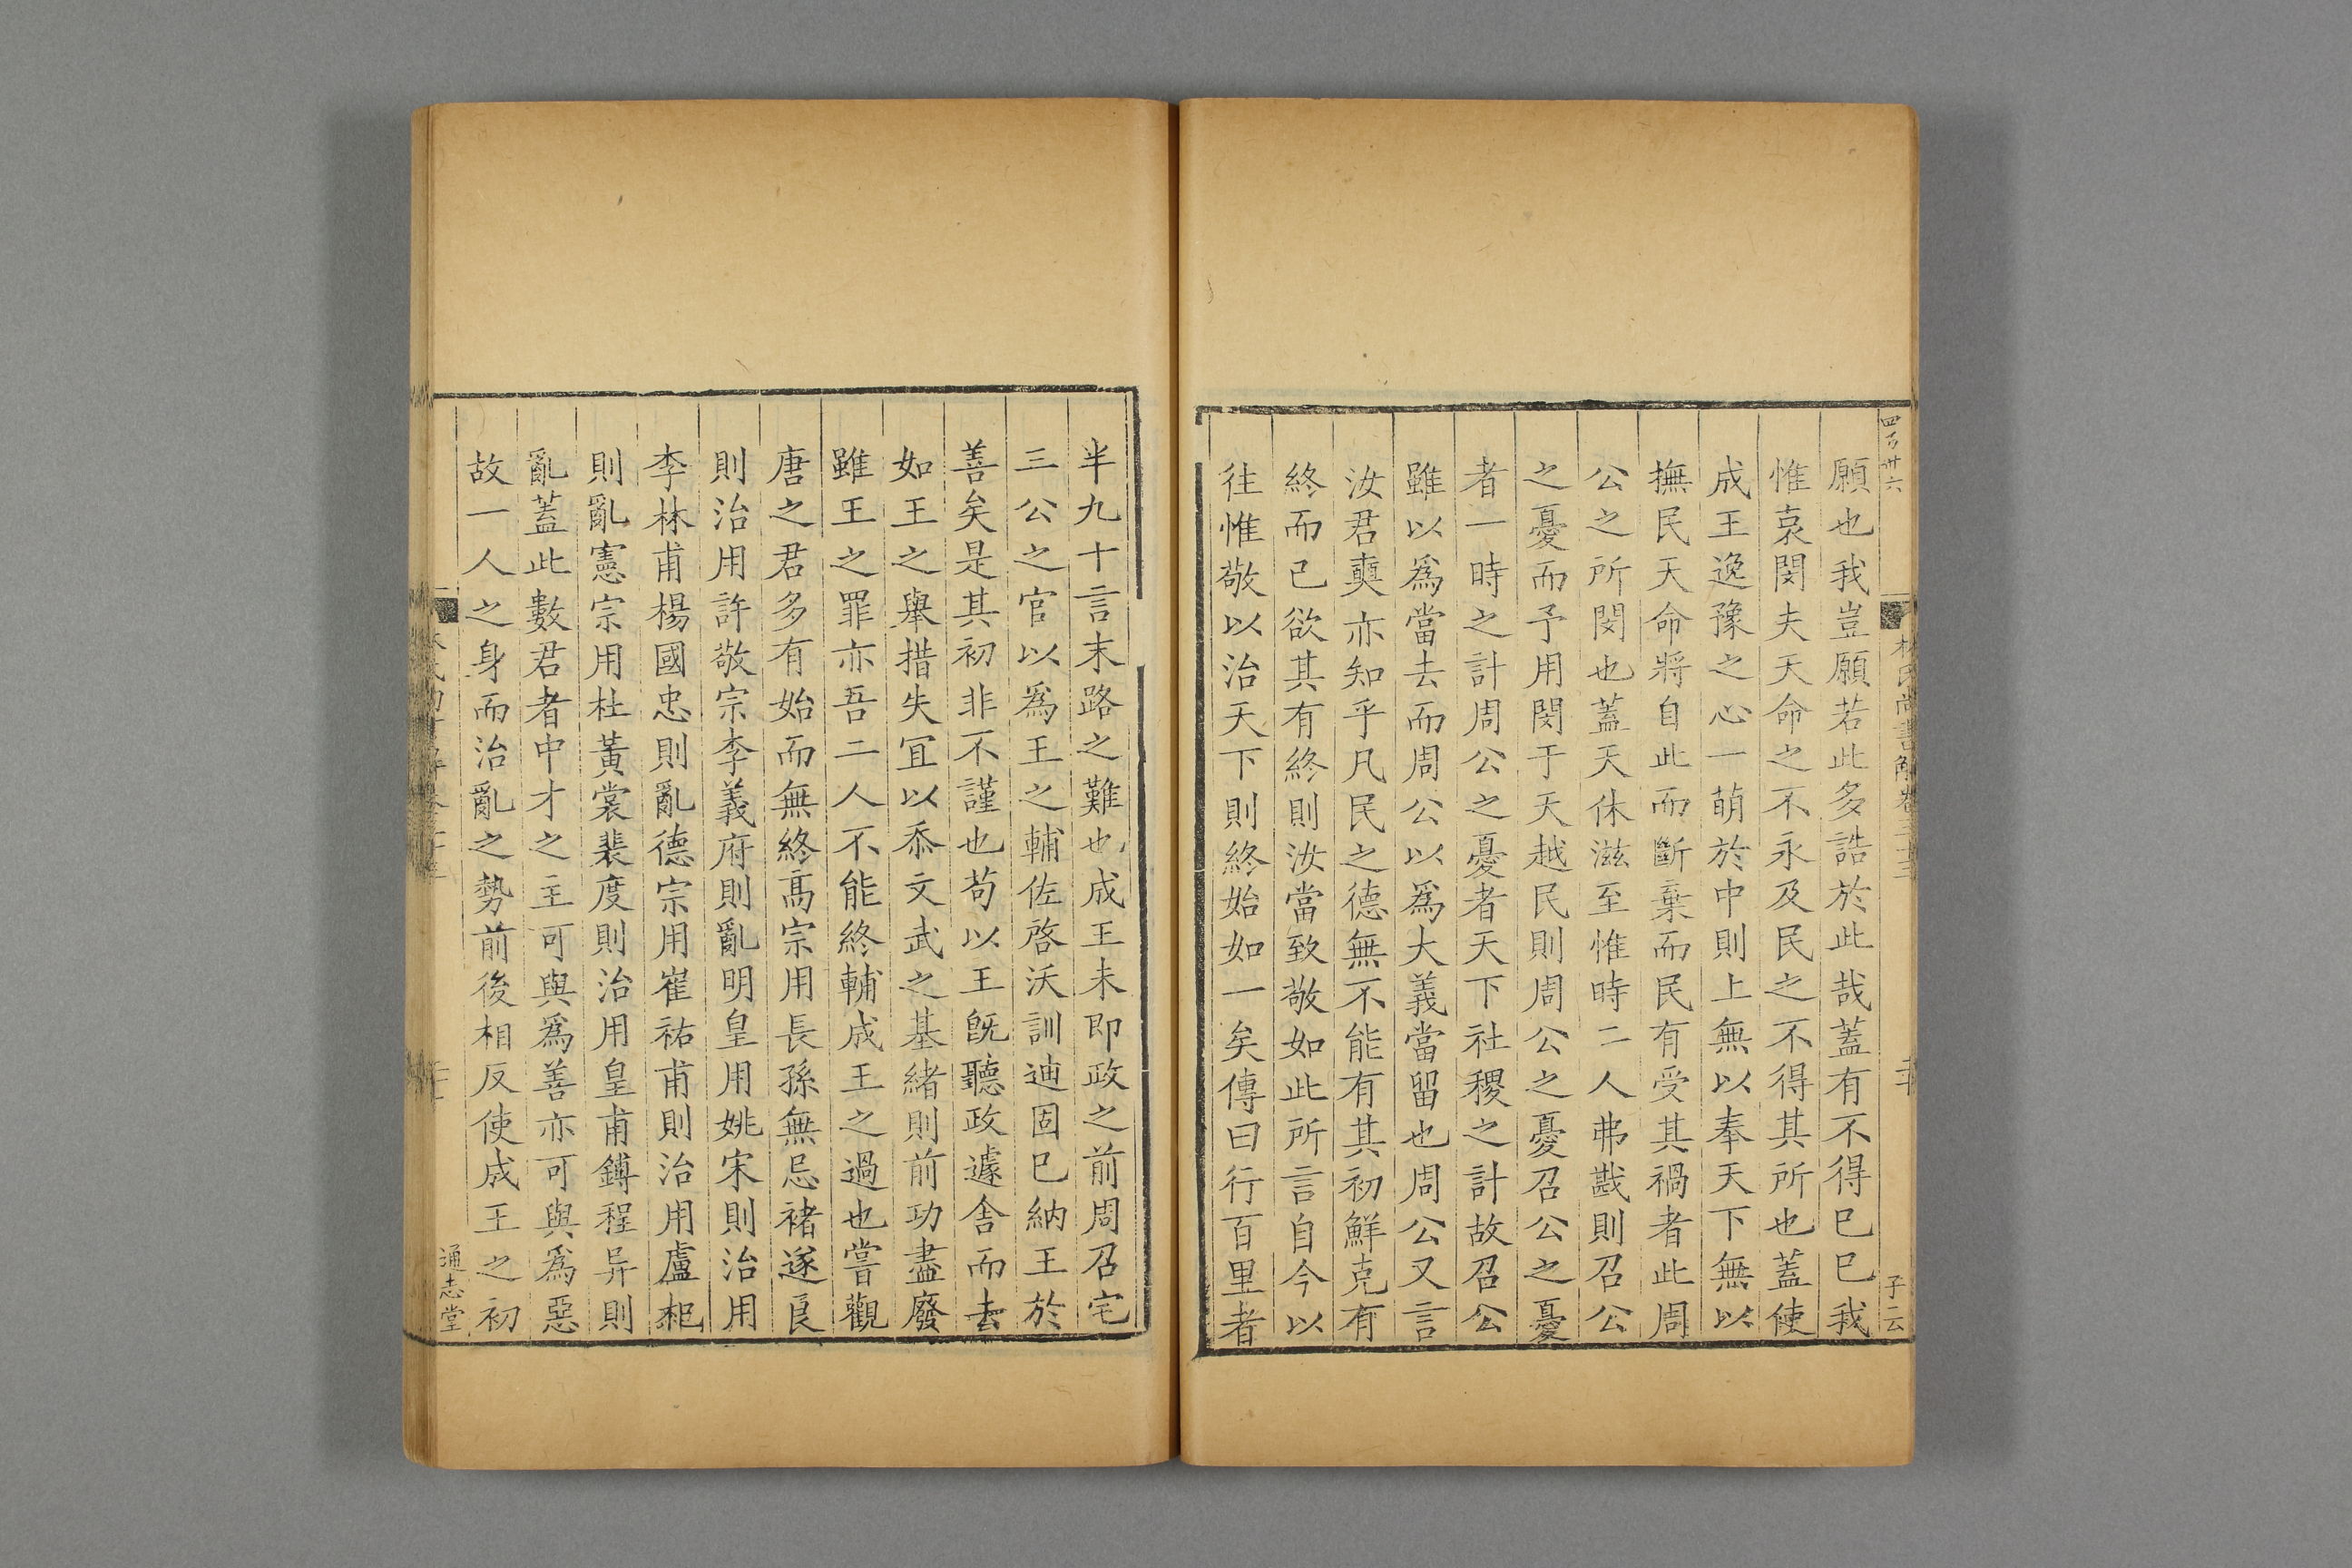 四百卅六
林氏尚書解卷三十三
子云
願也我豈願若此多誥於此哉蓋有不得已已我
惟哀閔夫天命之不永及民之不得其所也蓋使
成王逸豫之心一萌於中則上無以奉天下無以
撫民天命將自此而斷棄而民有受其禍者此周
公之所閔也蓋天休滋至惟時二人弗戡則召公
之憂而予用閔于天越民則周公之憂召公之憂
者一時之計周公之憂者天下社稷之計故召公
雖以爲當去而周公以爲大義當留也周公又言
汝君奭亦知乎凡民之德無不能有其初鮮克有
終而已欲其有終則汝當致敬如此所言自今以
往惟敬以治天下則終始如一矣傳曰行百里者
半九十言末路之難也成王未即政之前周召宅
三公之官以爲王之輔佐啓沃訓迪固已納王於
善矣是其初非不謹也苟以王旣聽政遽舍而去
如王之舉措失宜以忝文武之基緒則前功盡廢
雖王之罪亦吾二人不能終輔成王之過也嘗觀
唐之君多有始而無終高宗用長孫無忌褚遂良
則治用許敬宗李義府則亂明皇用姚宋則治用
李林甫楊國忠則亂德宗用崔祐甫則治用盧𣏌
則亂憲宗用杜黃裳裴度則治用皇甫鎛程异則
亂蓋此數君者中才之主可與爲善亦可與爲惡
故一人之身而治亂之勢前後相反使成王之初
通志堂